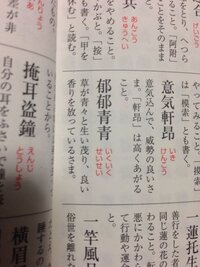 をとり、へつら
こと。「阿附」
ことをそのまま
あんこう
きゅうへい
をやめること。
休む」と読む。
やってみること。
は「模索」とも書く。
意気軒昂
いき
けんこう
意気込んで、威勢の良いさ
ま。「軒昂」は高くあがる
こと。
郁郁青青
いくいく
せいせい
草が青々と生い茂り、良い
香りを放っているさま。
一蓮托生
善行をした者
同じ蓮の花の
ること。
悪にかかわ
行動や運
一竿風
俗世を離れ
差が非
掩耳盗鐘
えんじ
とうしょう
自分の耳をふさいで鐘を
横眉